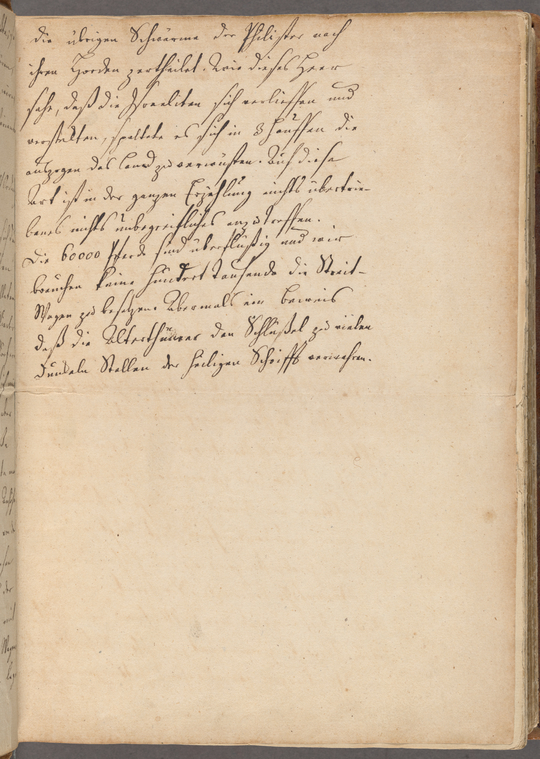 die übrigen Schwärme der Philister nach
ihren Horden zertheilet. Wie dieses Heer
sahe, daß die Israeliten sich verlieffen und
verstekten, spaltete es sich in 3 Hauffen die
auszogen das Land zu verwüsten. Auf diese
Art ist in der ganzen Erzehlung nichts übertrie-
benes nichts unbegreifliches anzutreffen.
Die 60000 Pferde sind überflüßig und wir
brauchen keine hundert tausende die Streit-
Wagen zu besetzen. Abermals ein Beweis
daß die Alterthümer den Schlüßel zu vielen
dunkeln Stellen der heiligen Schrifft verwahren.